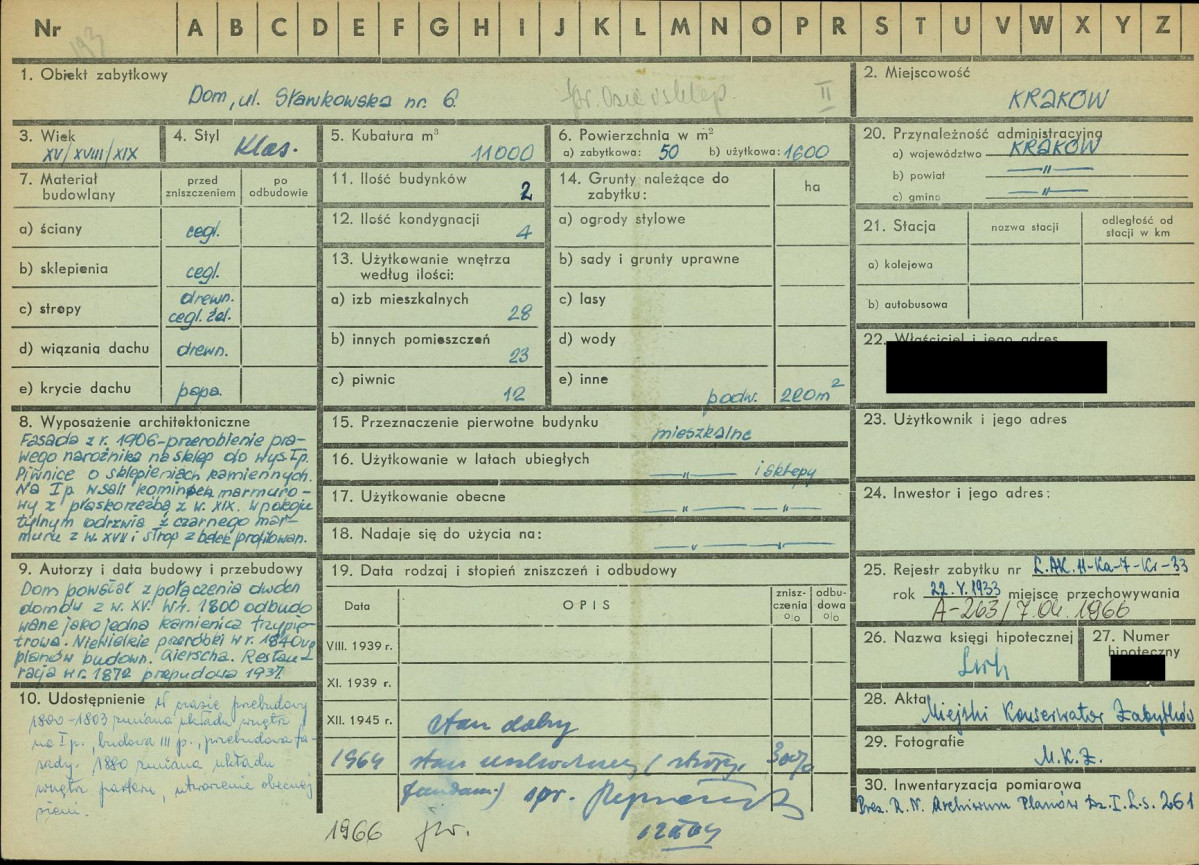 Nr
193
A B C D E F G H I J K L M N O P R S T U V W X Y Z
1. Obiekt zabytkowy
Dom, ul. Sławkowska nr. 6
II
2. Miejscowość
KRAKÓW
3. Wiek
XV/XVIII/XIX
4. Styl
Klas.
5. Kubatura m³
11000
6. Powierzchnia w m²
a) zabytkowa: 50 b) użytkowa: 1600
20. Przynależność administracyjna
a) województwo KRAKÓW
b) powiat —"—
c) gmina —"—
7. Materiał budowlany
przed zniszczeniem
po odbudowie
a) ściany cegl.
b) sklepienia cegl.
c) stropy drewn.
cegl. żel.
d) wiązania dachu drewn.
e) krycie dachu papa.
11. Ilość budynków 2
12. Ilość kondygnacji 4
13. Użytkowanie wnętrza według ilości:
a) izb mieszkalnych 28
b) innych pomieszczeń 23
c) piwnic 12
14. Grunty należące do zabytku:
ha
a) ogrody stylowe
b) sady i grunty uprawne
c) lasy
d) wody
e) inne podw. 220 m²
21. Stacja
nazwa stacji
odległość od stacji w km
a) kolejowa
b) autobusowa
22. Właściciel i jego adres
8. Wyposażenie architektoniczne
Fasada z r. 1906 - przerobienie pra-
wego narożnika na sklep do wys. I p.
Piwnice o sklepieniach kamiennych.
Na I p. w sali kominek marmuro-
wy z płaskorzeźbą z w. XIX. w pokoju
tylnym odrzwia z czarnego mar-
muru z w. XVII i strop z belek profilowan.
15. Przeznaczenie pierwotne budynku mieszkalne
16. Użytkowanie w latach ubiegłych —"— i sklepy
17. Użytkowanie obecne —"— —"—
18. Nadaje się do użycia na: —"— —"—
23. Użytkownik i jego adres
24. Inwestor i jego adres:
9. Autorzy i data budowy i przebudowy
Dom powstał z połączenia dwóch
domów z w. XV. W r. 1800 odbudo
wane jako jedna kamienica trzypię-
trowa. Niewielkie przeróbki w r. 1840 wg
planów budown. Gierscha. Restau-
racja w r. 1872 przebudowa 1937.
19. Data rodzaj i stopień zniszczeń i odbudowy
Data
OPIS
zniszczenia %
odbudowa %
VIII. 1939 r.
XI. 1939 r.
XII. 1945 r. stan dobry
1964
30%
fundam.) spr.
1966
25. Rejestr zabytku nr L.AK.II-Ka-7-Kr-33
rok 22.V.1933 miejsce przechowywania
A-263/7.04.1966
26. Nazwa księgi hipotecznej
Lwh
27. Numer hipoteczny
10. Udostępnienie W czasie przebudowy
1800-1803 zmiana układu wnętrz
na I p., budowa III p., przebudowa fa-
sady. 1880 zmiana układu
wnętrz parteru, utworzenie obecnej
sieni.
28. Akta Miejski Konserwator Zabytków
29. Fotografie
M.K.Z.
30. Inwentaryzacja pomiarowa
Prez. R.N. Archiwum Planów Dz. I L.s. 261